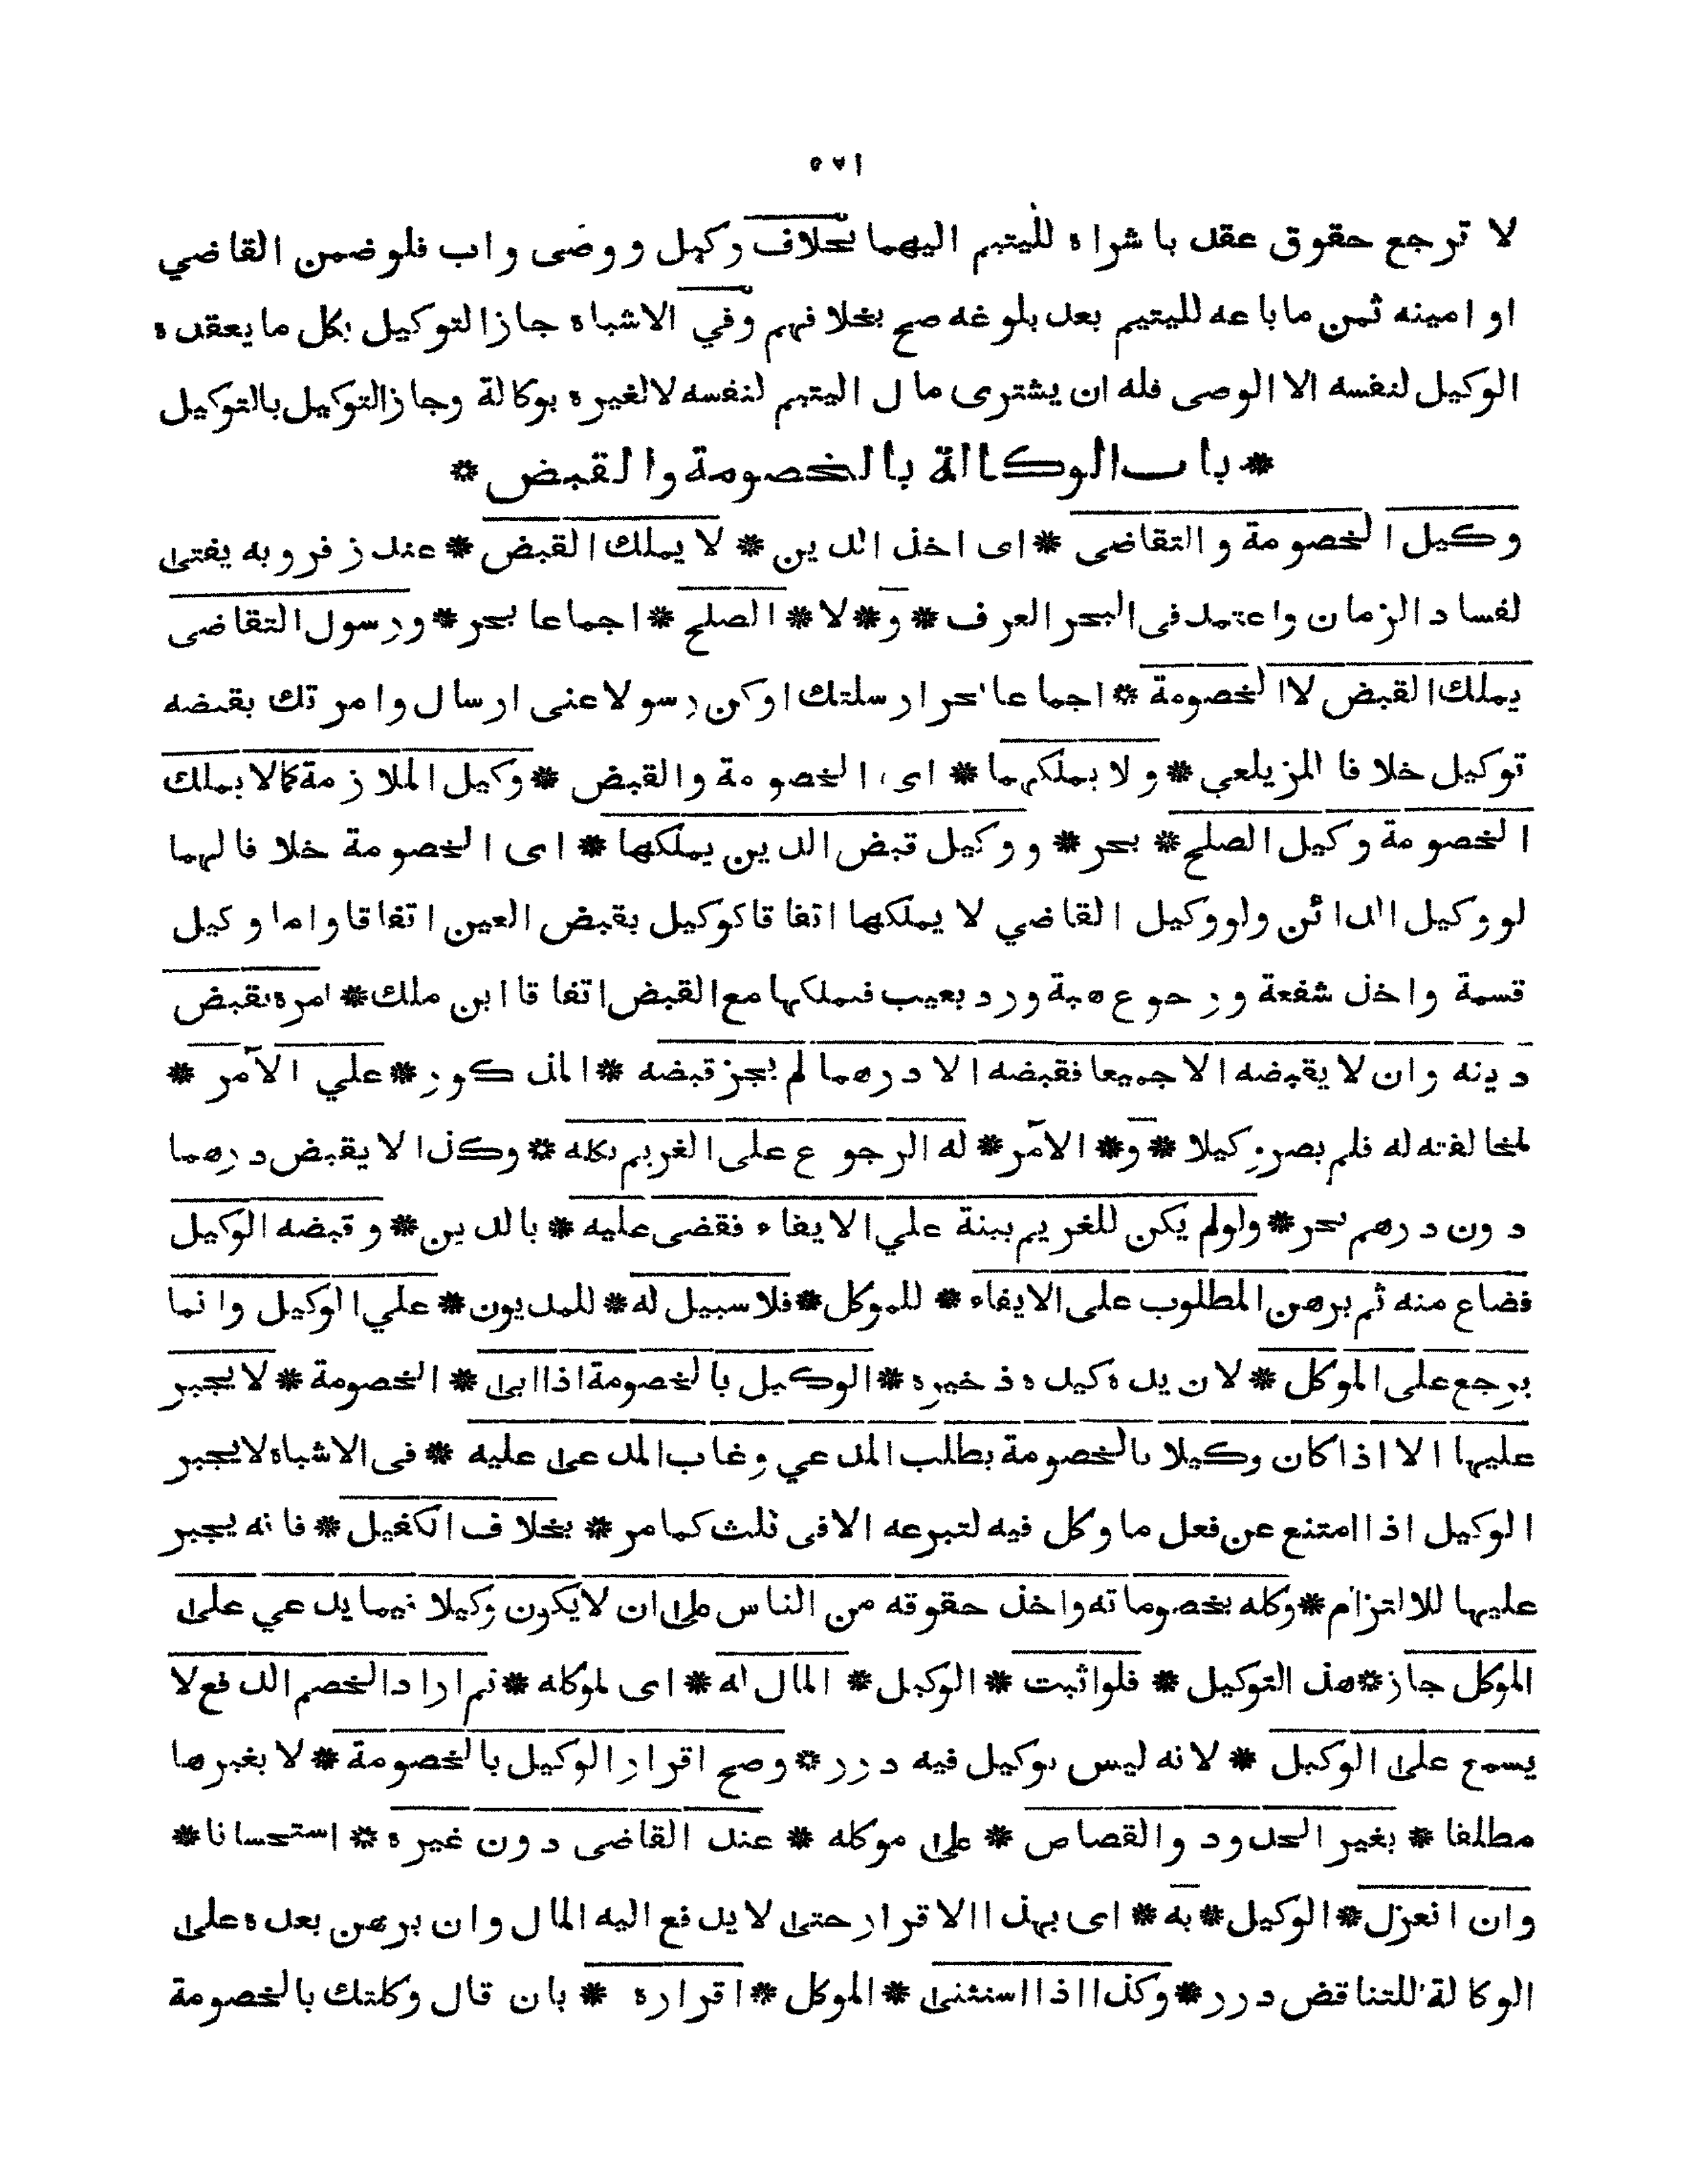 ٥٧١
لا ترجع حقوق عقد باشراه لليتيم اليهما بخلاف وكيل ووصى واب فلوضمن القاضي
او امينه ثمن ماباعه لليتيم بعد بلوغه صح بخلافهم وفي الاشباه جاز التوكيل بكل مايعقده
الوكيل لنفسه الا الوصى فله ان يشترى مال اليتيم لنفسه لالغيره بوكالة وجاز التوكيل بالتوكيل
* باب الوكالة بالخصومة والقبض *
وكيل الخصومة والتقاضى * اى اخذ الدين * لا يملك القبض * عند زفر وبه يفتى
لفساد الزمان واعتمد فى البحر العرف * و * لا * الصلح * اجماعا بحر * ورسول التقاضى
يملك القبض لا الخصومة * اجماعا بحر ارسلتك اوكن رسولا عنى ارسال وامرتك بقبضه
توكيل خلافا للزيلعي * ولا يملكهما * اى الخصومة والقبض * وكيل الملازمة كما لا يملك
الخصومة وكيل الصلح * بحر * ووكيل قبض الدين يملكها * اى الخصومة خلافا لهما
لو وكيل الدائن ولو وكيل القاضي لا يملكها اتفاقا كوكيل بقبض العين اتفاقا واما وكيل
قسمة واخذ شفعة ورجوع هبة ورد بعيب فيملكها مع القبض اتفاقا ابن ملك * امره بقبض
دينه وان لا يقبضه الا جميعا فقبضه الا درهما لم يجز قبضه * المذكور * علي الآمر *
لمخالفته له فلم يصر وكيلا * و * الآمر * له الرجوع على الغريم بكله * وكذا لا يقبض درهما
دون درهم بحر * ولولم يكن للغريم بينة علي الايفاء فقضى عليه * بالدين * وقبضه الوكيل
فضاع منه ثم برهن المطلوب على الايفاء * للموكل * فلا سبيل له * للمديون * علي الوكيل وانما
يرجع على الموكل * لان يده كيده ذخيره * الوكيل بالخصومة اذا ابى * الخصومة * لا يجبر
عليها الا اذا كان وكيلا بالخصومة بطلب المدعي وغاب المدعى عليه * فى الاشباه لايجبر
الوكيل اذا امتنع عن فعل ما وكل فيه لتبرعه الا فى ثلث كما مر * بخلاف الكفيل * فانه يجبر
عليها للالتزام * وكله بخصوماته واخذ حقوقه من الناس على ان لايكون وكيلا فيما يدعي على
الموكل جاز * هذ التوكيل * فلو اثبت * الوكيل * المال له * اى لموكله * ثم اراد الخصم الدفع لا
يسمع على الوكيل * لانه ليس بوكيل فيه درر * وصح اقرار الوكيل بالخصومة * لا بغيرها
مطلقا * بغير الحدود والقصاص * على موكله * عند القاضى دون غيره * استحسانا *
وان انعزل * الوكيل * به * اى بهذا الاقرار حتى لا يدفع اليه المال وان برهن بعده على
الوكالة للتناقض درر * وكذا اذا استثنى * الموكل * اقراره * بان قال وكلتك بالخصومة